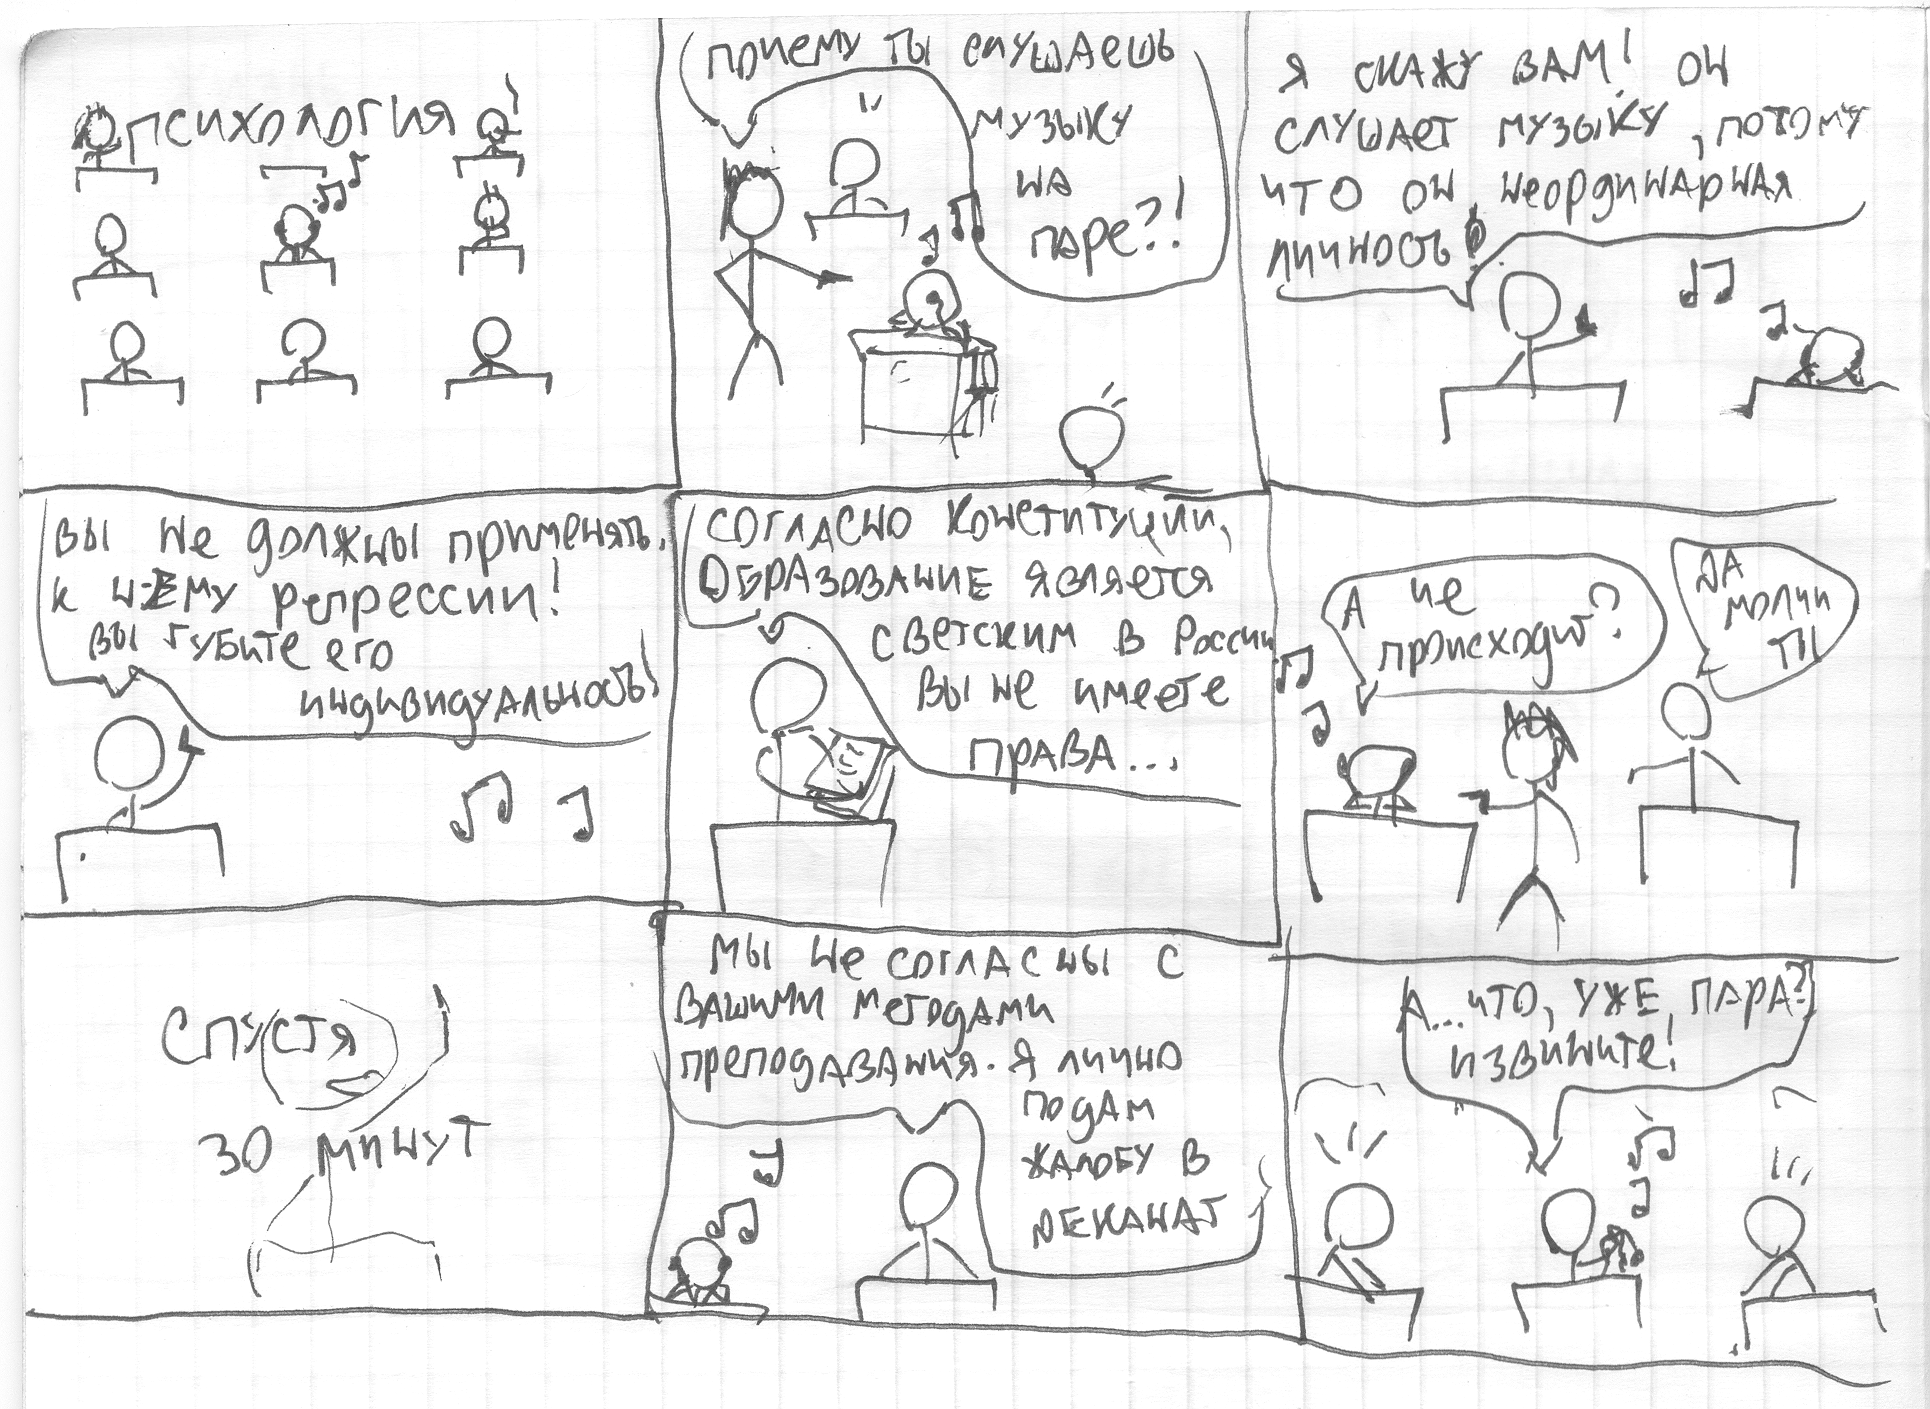 ПСИХОЛОГИЯ
ПОЧЕМУ ТЫ СЛУШАЕШЬ
МУЗЫКУ
НА
ПАРЕ?!
Я СКАЖУ ВАМ! ОН
СЛУШАЕТ МУЗЫКУ, ПОТОМУ
ЧТО ОН НЕОРДИНАРНАЯ
ЛИЧНОСТЬ
ВЫ НЕ ДОЛЖНЫ ПРИМЕНЯТЬ
К НЕМУ РЕПРЕССИИ!
ВЫ ГУБИТЕ ЕГО
ИНДИВИДУАЛЬНОСТЬ!
СОГЛАСНО КОНСТИТУЦИИ,
ОБРАЗОВАНИЕ ЯВЛЯЕТСЯ
СВЕТСКИМ В РОССИИ
ВЫ НЕ ИМЕЕТЕ
ПРАВА...
А ЧЕ
ПРОИСХОДИТ?
ДА
МОЛЧИ
ТЫ
СПУСТЯ
30 МИНУТ
МЫ НЕ СОГЛАСНЫ С
ВАШИМИ МЕТОДАМИ
ПРЕПОДАВАНИЯ. Я ЛИЧНО
ПОДАМ
ЖАЛОБУ В
ДЕКАНАТ
А...ЧТО, УЖЕ ПАРА?
ИЗВИНИТЕ!